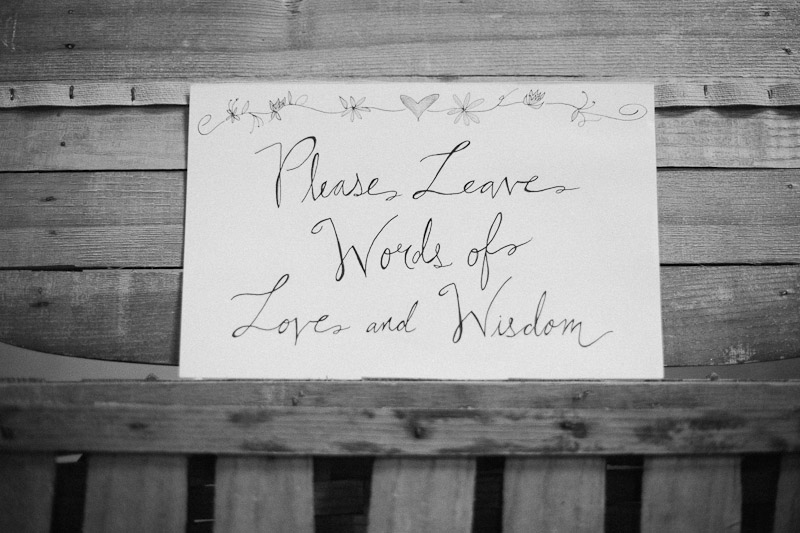 Please Leave
Words of
Love and Wisdom